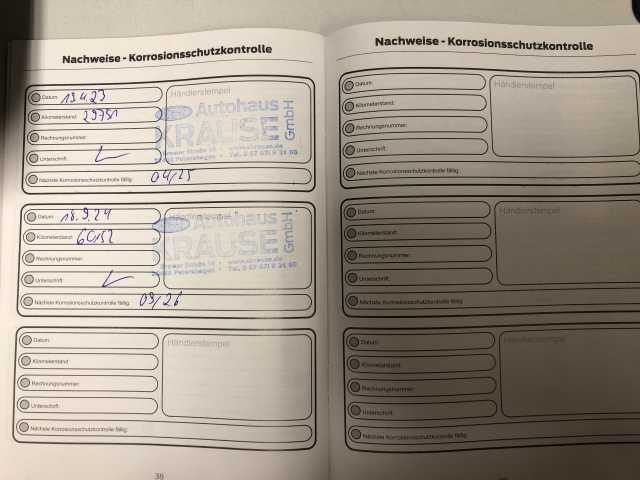 Nachweise - Korrosionsschutzkontrolle
Datum: 19.4.23
Händlerstempel
Kilometerstand: 29751
Autohaus
KRAUSE GmbH
Rechnungsnummer:
Unterschrift:
Petershagen · Tel.
Nächste Korrosionsschutzkontrolle fällig: 04/25
Datum: 18.9.24
Händlerstempel
Autohaus
Kilometerstand: 60152
KRAUSE GmbH
Rechnungsnummer:
Unterschrift:
Petershagen · Tel.
Nächste Korrosionsschutzkontrolle fällig: 09/26
Datum:
Händlerstempel
Kilometerstand:
Rechnungsnummer:
Unterschrift:
Nächste Korrosionsschutzkontrolle fällig:
Nachweise - Korrosionsschutzkontrolle
Datum:
Händlerstempel
Kilometerstand:
Rechnungsnummer:
Unterschrift:
Nächste Korrosionsschutzkontrolle fällig:
Datum:
Händlerstempel
Kilometerstand:
Rechnungsnummer:
Unterschrift:
Nächste Korrosionsschutzkontrolle fällig:
Datum:
Händlerstempel
Kilometerstand:
Rechnungsnummer:
Unterschrift:
Nächste Korrosionsschutzkontrolle fällig: